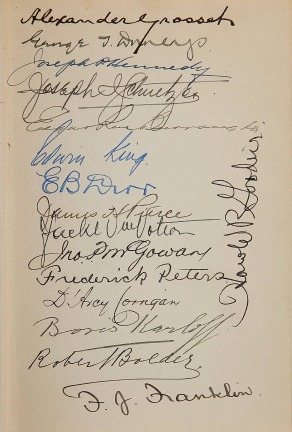 Alexander Grosset
George T. Dunning
Joseph P. Kennedy
Joseph J. Schnitzer
Edgar Rice Burroughs
Edwin King
E B Derr
James H Pierce
Jno P McGowan
Frederick Peters
D'Arcy Corrigan
Boris Karloff.
Robert Bolder.
F. J. Franklin.
Harold R. Goodwin